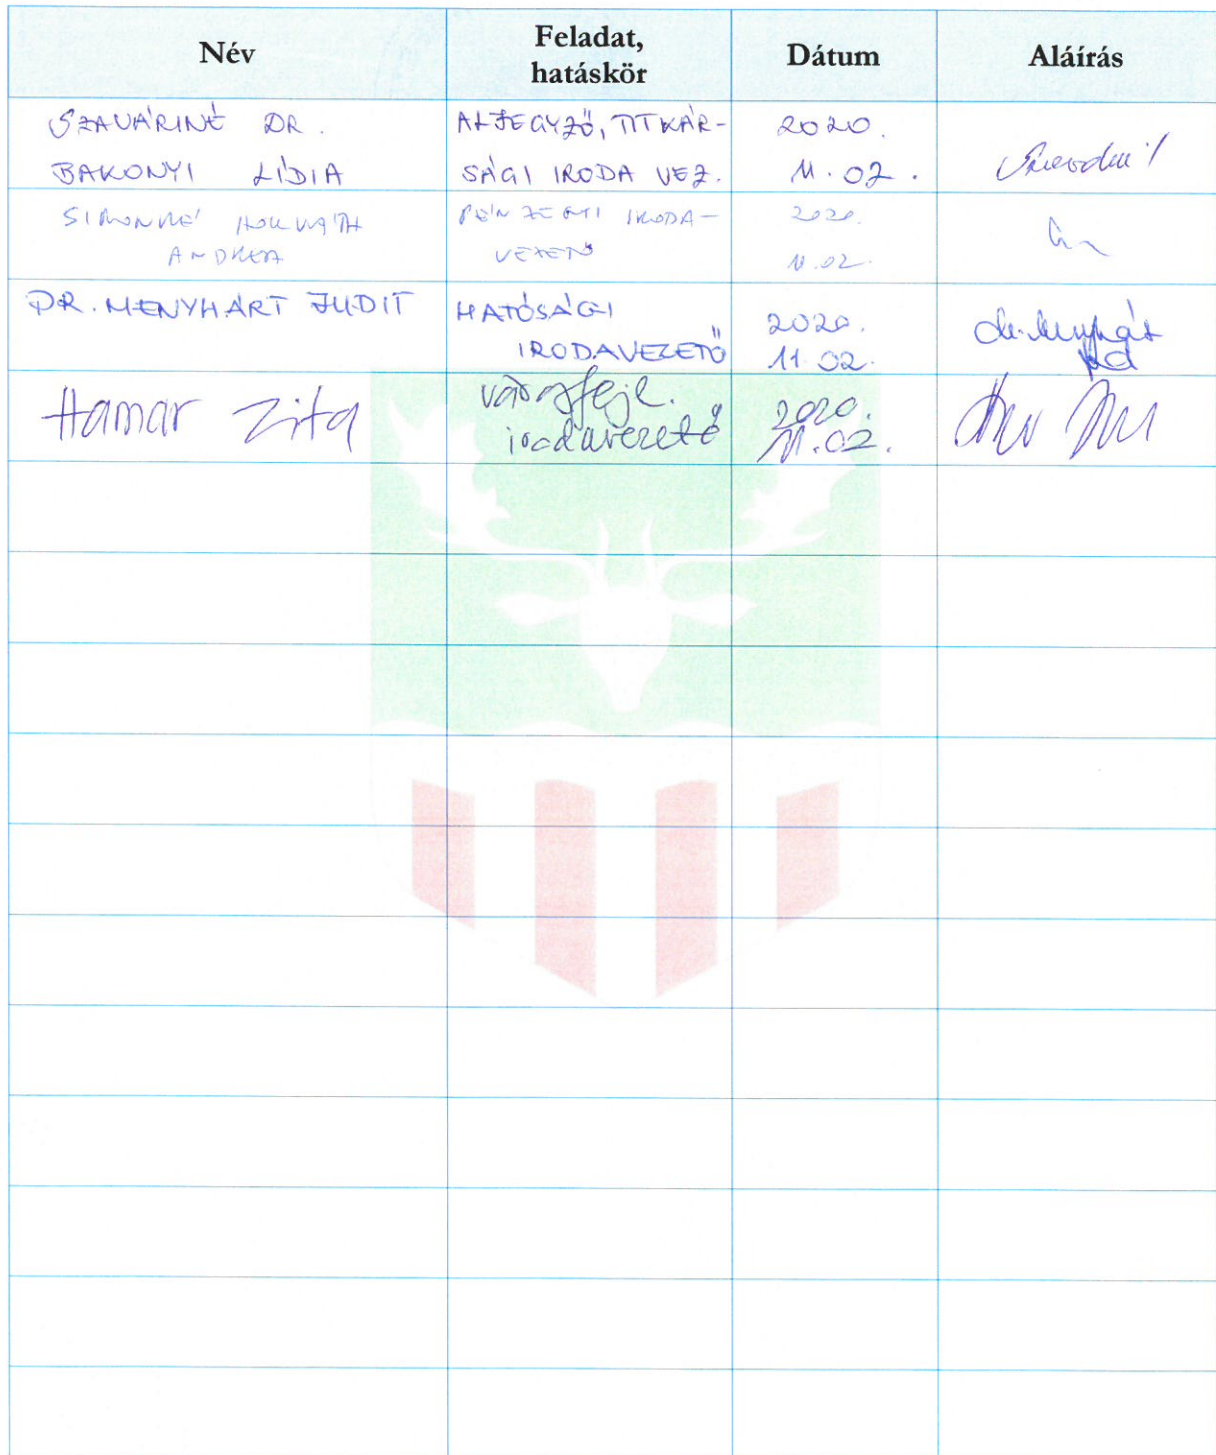 Név
Feladat,
hatáskör
Dátum
Aláírás
SZAVÁRINÉ DR.
BAKONYI LÍDIA
ALJEGYZŐ, TITKÁR-
SÁGI IRODA VEZ.
2020.
11.02.
SIMONNÉ HORVÁTH
ANDREA
PÉNZÜGYI IRODA-
VEZETŐ
2020.
11.02.
DR. MENYHÁRT JUDIT
HATÓSÁGI
IRODAVEZETŐ
2020.
11.02.
Hamar Zita
városfejl.
irodavezető
2020.
11.02.